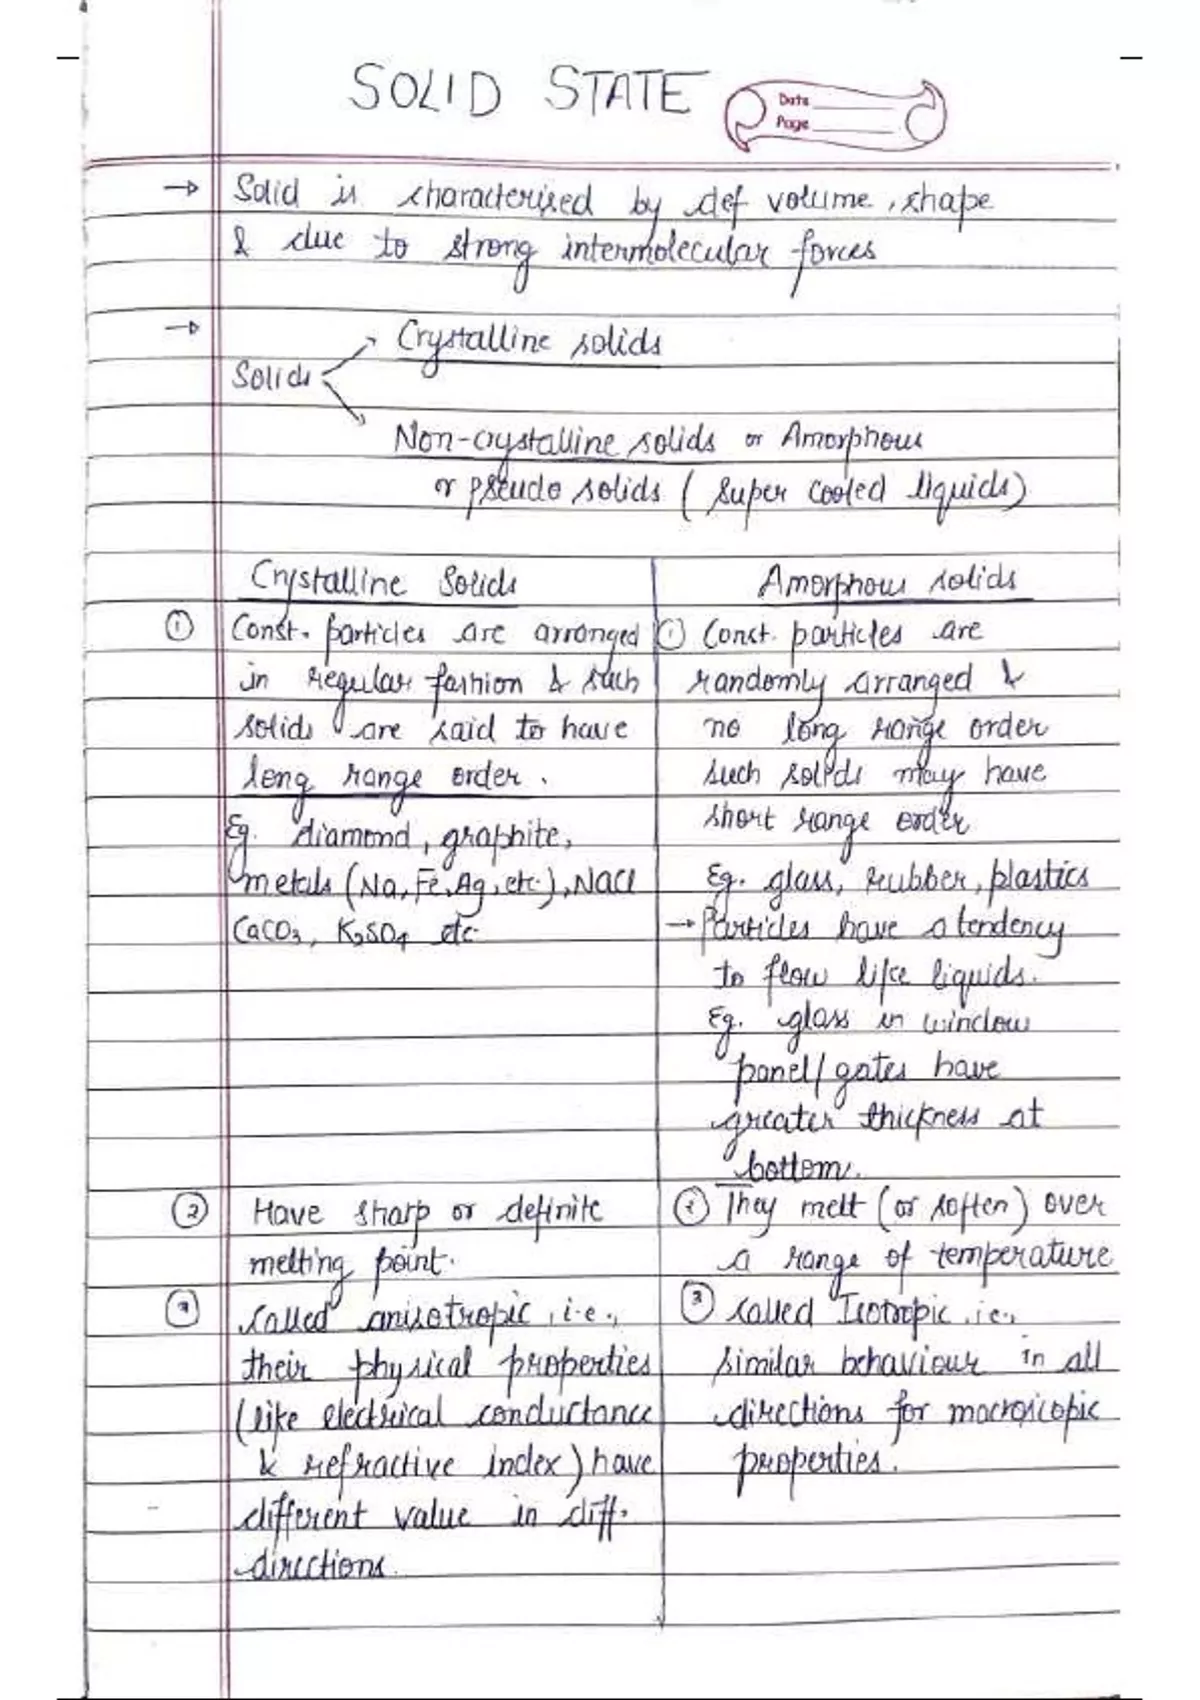 SOLID STATE
Date
Page
→ Solid is characterised by def volume, shape
& due to strong intermolecular forces
→ Crystalline solids
Solids
Non-crystalline solids or Amorphous
or pseudo solids (super cooled liquids)
Crystalline Solids
① Const. particles are arranged
in regular fashion & such
solids are said to have
long range order.
Eg. diamond, graphite,
metals (Na, Fe, Ag, etc.), NaCl
CaCO3, K2SO4 etc.
② Have sharp or definite
melting point.
③ Called anisotropic, i.e.,
their physical properties
(like electrical conductance
& refractive index) have
different value in diff.
directions.
Amorphous solids
① Const. particles are
randomly arranged &
no long range order
such solids may have
short range order
Eg. glass, rubber, plastics
→ Particles have a tendency
to flow like liquids.
Eg. glass in window
panel/gates have
greater thickness at
bottom.
② They melt (or soften) over
a range of temperature
③ Called Isotropic, i.e.,
similar behaviour in all
directions for macroscopic
properties.